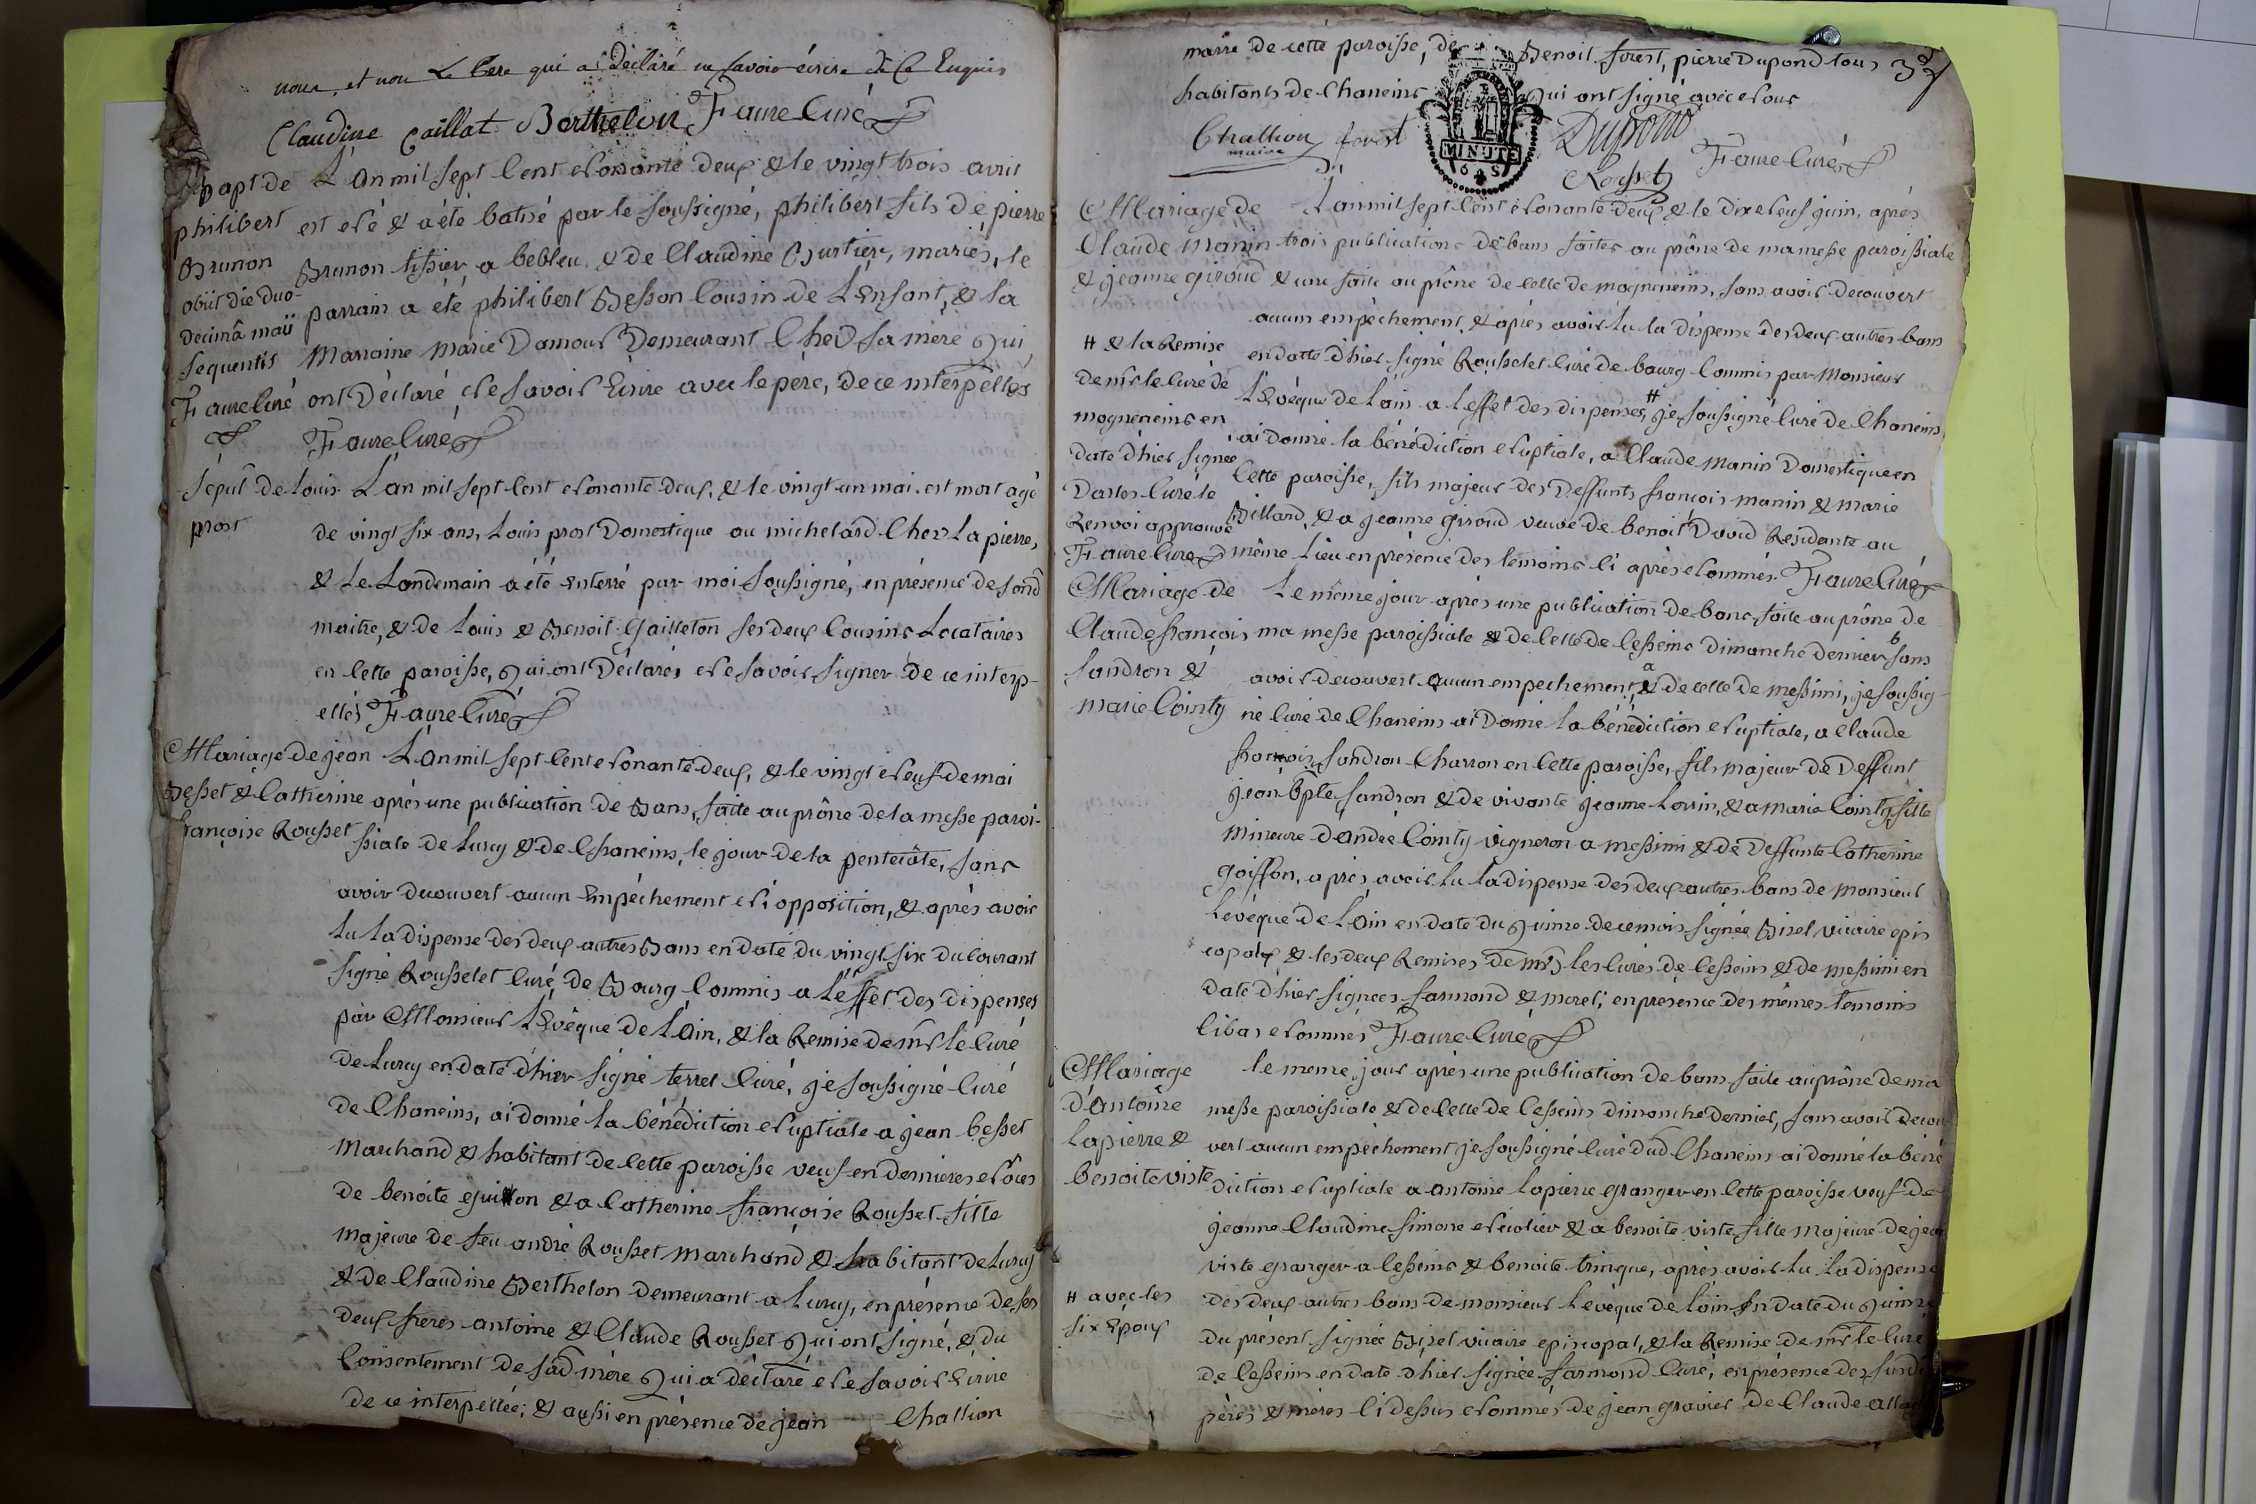 nous, et non Le Pere qui a déclaré ne savoir écrire de Ce Enquis
Claudine Caillat Berthelon Faure Curé
Bapt de
philibert
Brunon
obiit die duo-
decimâ maii
sequentis
Faure Curé
L'an mil sept Cent nonante deux & le vingt trois avril
est né & a été batisé par le soussigné, philibert fils de pierre
Brunon tissier a bebleu & de Claudine Curtier, mariés, le
parrain a été philibert Besson Cousin de L'Enfant, & la
Marraine Marie Damour Demeurant Chez Sa mère qui
ont Déclaré ne savoir Ecrire avec le père, de ce interpellés
Faure Curé
Sepul de Louis
prost
L'an mil sept Cent nonante deux, & le vingt un mai est mort agé
de vingt six ans, Louis prost Domestique au michelard Chez La pierre,
& Le Lendemain a été Enterré par moi soussigné, en présence de sond
maître, & de Louis & Benoit Gailleton ses deux Cousins Locataires
en Cette paroisse, qui ont Déclarés ne savoir signer de ce interp-
ellés Faure Curé
Mariage de jean
Besset & Catherine
françoise Rousset
L'an mil sept Cent nonante deux, & le vingt neuf de mai
après une publication de Bans, faite au prône de la messe paroi-
ssiale de Lurcy & de Chaneins, le jour de la pentecôte, sans
avoir decouvert aucun Empéchement ni opposition, & après avoir
Lu La dispense des deux autres Bans en date du vingt six du Courant
signé Rousselet Curé de Bourg Commis a L'effet des dispenses
par Monsieur L'Evêque de L'Ain, & la Remise de mr le Curé
de Lurcy en date d'hier signé terret Curé, je soussigné Curé
de Chaneins, ai donné la bénédiction nuptiale a jean besset
Marchand & habitant de Cette paroisse veuf en dernieres nôces
de benoite guitton & a Catherine françoise Rousset fille
majeure de feu andré Rousset Marchand & habitant de Lurcy
& de Claudine Berthelon demeurant a Lurcy, en présence de ses
deux freres antoine & Claude Rousset qui ont signé, & du
Consentement de sad mère qui a déclaré ne savoir Ecrire
de ce interpellée; & aussi en présence de jean Challion
maire de cette paroisse, de Benoit forest, pierre Dupond tous
habitants de Chaneins qui ont signé avec nous
MINUTE
Challion
maire
forest
Dupond
Rousset
Faure Curé
Mariage de
Claude Manin
& jeanne giroud
L'an mil sept Cent nonante deux & le dix neuf juin, après
trois publications de bans faites au prône de ma messe paroissiale
& une faite au prône de Celle de mogneneins, sans avoir decouvert
aucun empêchement, & après avoir Lu la dispense des deux autres bans
en datte d'hier signé Rousselet Curé de bourg Commis par Monsieur
L'Evêque de L'ain a l'effet des dispenses, # je soussigné Curé de Chaneins,
ai donné la bénédiction nuptiale, a Claude Manin Domestique en
Cette paroisse, fils majeur des Deffunts françois Manin & Marie
Billard, & a jeanne giroud veuve de benoit David Residante au
même Lieu en présence des temoins Ci après nommés Faure Curé
# & la Remise
de mr le Curé de
mogneneins en
date d'hier signée
Dartes Curé le
Renvoi approuvé
Faure Curé
Mariage de
Claude françois
sandron &
Marie Cointy
Le même jour après une publication de bans, faite au prône de
ma messe paroissiale & de Celle de Cesseins Dimanche dernier b sans
avoir decouvert aucun empechement, a & de celle de messimi, je soussig-
né Curé de Chaneins ai Donné la bénédiction nuptiale, a Claude
françois sandron Charron en Cette paroisse, fils majeur de Deffunt
jean bpte sandron & de vivante jeanne Lorrin, & a Marie Cointy fille
Mineure d'andré Cointy vigneron a messimi & de Deffunte Catherine
goiffon, après avoir Lu la dispense des deux autres bans de Monsieur
L'evêque de L'ain en date du quinze de ce mois signée Bizet vicaire epis
copal, & les deux Remises de mrs les Curés de Cesseins & de messimi en
date d'hier signées farmond & moret; en présence des mêmes temoins
Ci bas nommés Faure Curé
Mariage
d'Antoine
Lapierre &
benoite viste
Le meme jour après une publication de bans faite au prône de ma
messe paroissiale & de Celle de Cesseins dimanche dernier, sans avoir decou
vert aucun empêchement je soussigné Curé dud Chaneins ai donné la béné
diction nuptiale a antoine Lapierre granger en Cette paroisse veuf de
jeanne Claudine simone & a benoite viste fille Majeure de jean
viste granger a Cesseins & benoite trinque, après avoir Lu la dispense
des deux autres bans de monsieur L'evêque de L'ain En date du quinze
du présent signée Bizet vicaire episcopal, & la Remise de mr le Curé
de Cesseins en date d'hier signée farmond Curé; en présence des
pères & mères Ci dessus nommés de jean gravier de Claude
# avec les
six Epoux